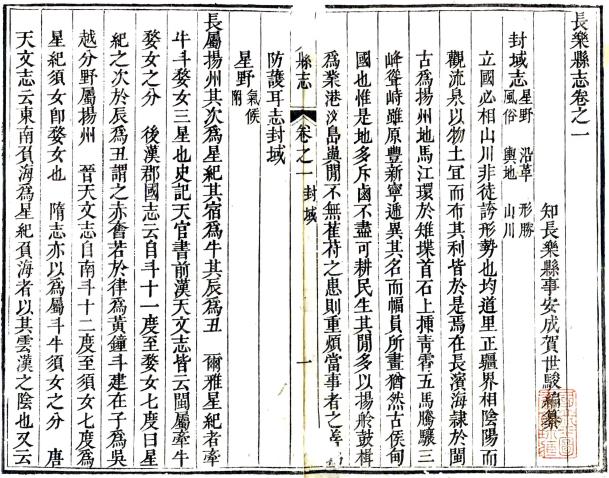 長樂縣志卷之一
知長樂縣事安成賀世駿編纂
封域志 星野 沿革 形勝 風俗 輿地 山川
立國必相山川非徒誇形勢也均道里正疆界相陰陽而
觀流泉以物土宜而布其利皆於是焉在長濱海隸於閩
古爲揚州地馬江環於雉堞首石上揷青霄五馬騰驤三
峰聳峙雖原豐新寧遞異其名而幅員所畫猶然古侯甸
國也惟是地多斥鹵不盡可耕民生其間多以揚舲鼓楫
爲業港汊島輿間不無萑苻之患則重煩當事者之
縣志
卷之一
封域
一
防護耳志封域
星野 氣候附
長屬揚州其次爲星紀其宿爲牛其辰爲丑 爾雅星紀者牽
牛斗婺女三星也史記天官書前漢天文志皆云閩屬牽牛
婺女之分 後漢郡國志云自斗十一度至婺女七度曰星
紀之次於辰爲丑謂之赤奮若於律爲黃鐘斗建在子爲吳
越分野屬揚州 晉天文志自南斗十二度至須女七度爲
星紀須女卽婺女也 隋志亦以爲屬斗牛須女之分 唐
天文志云東南負海爲星紀負海者以其雲漢之陰也又云